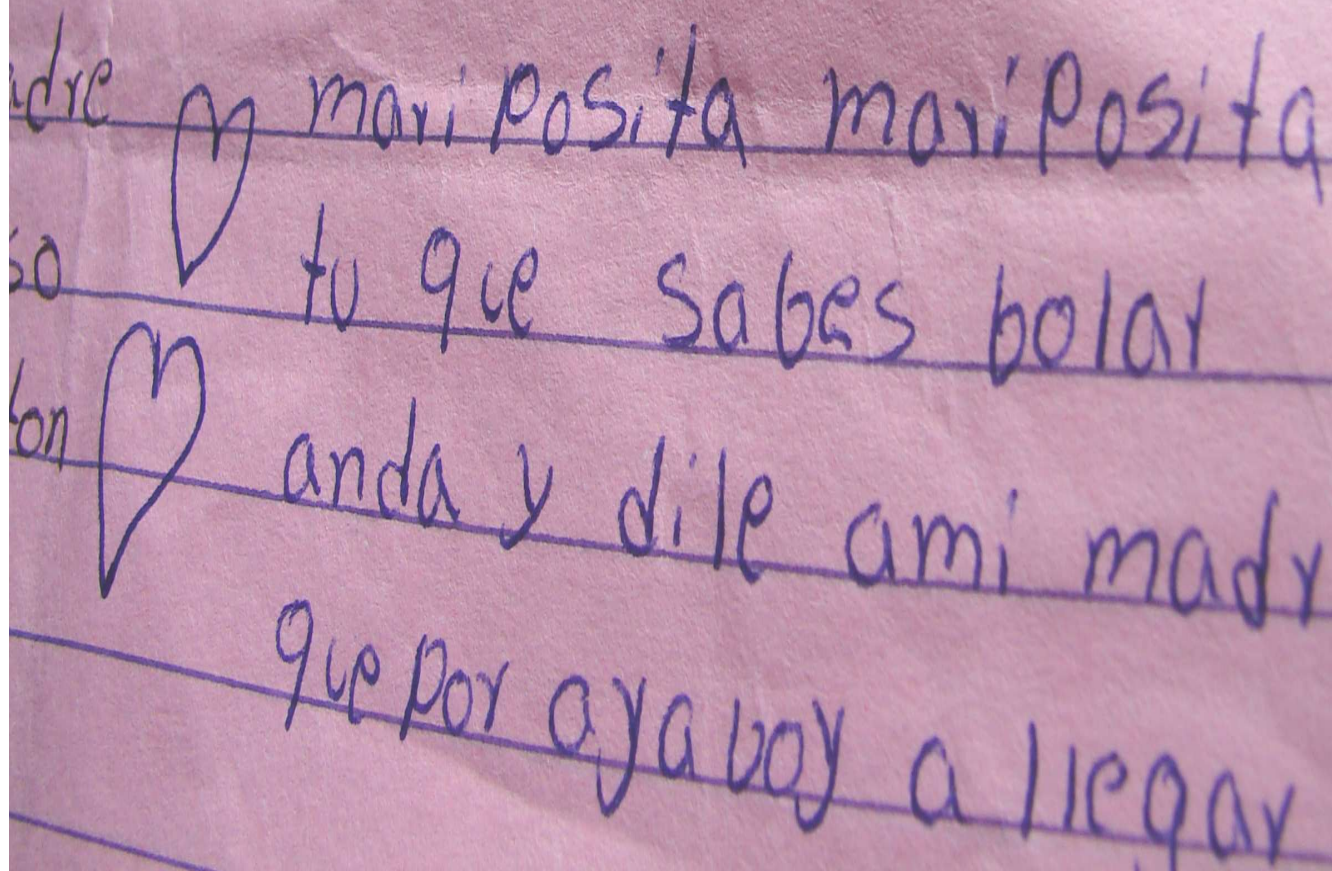 adre mariposita mariposita
so tu que sabes bolar
on anda y dile ami madr
que por aya boy a llegar